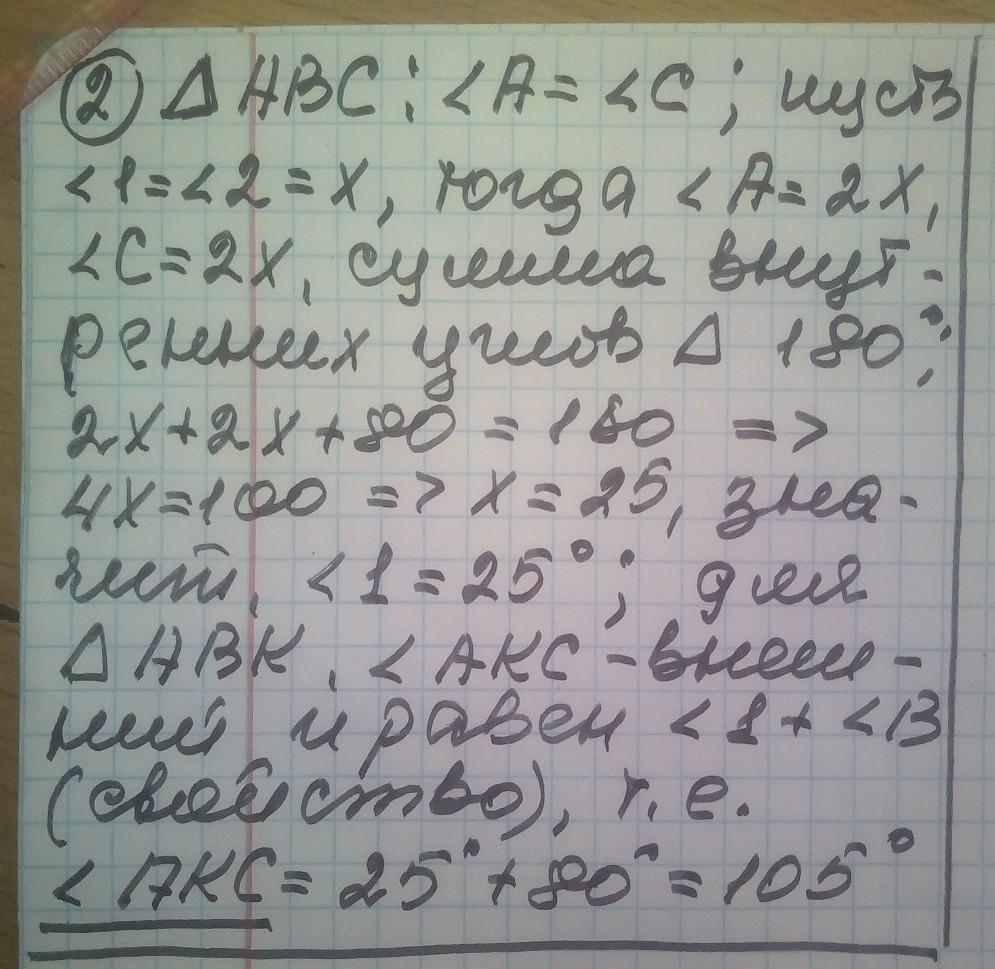 ② Δ ABC: <A = <C; пусть
<1 = <2 = x, тогда <A = 2x,
<C = 2x, сумма внут-
ренних углов Δ 180°;
2x + 2x + 80 = 180 =>
4x = 100 => x = 25, зна-
чит, <1 = 25°; для
Δ ABK, <AKC - внеш-
ний и равен <1 + <B
(свойство), т.е.
<AKC = 25° + 80° = 105°